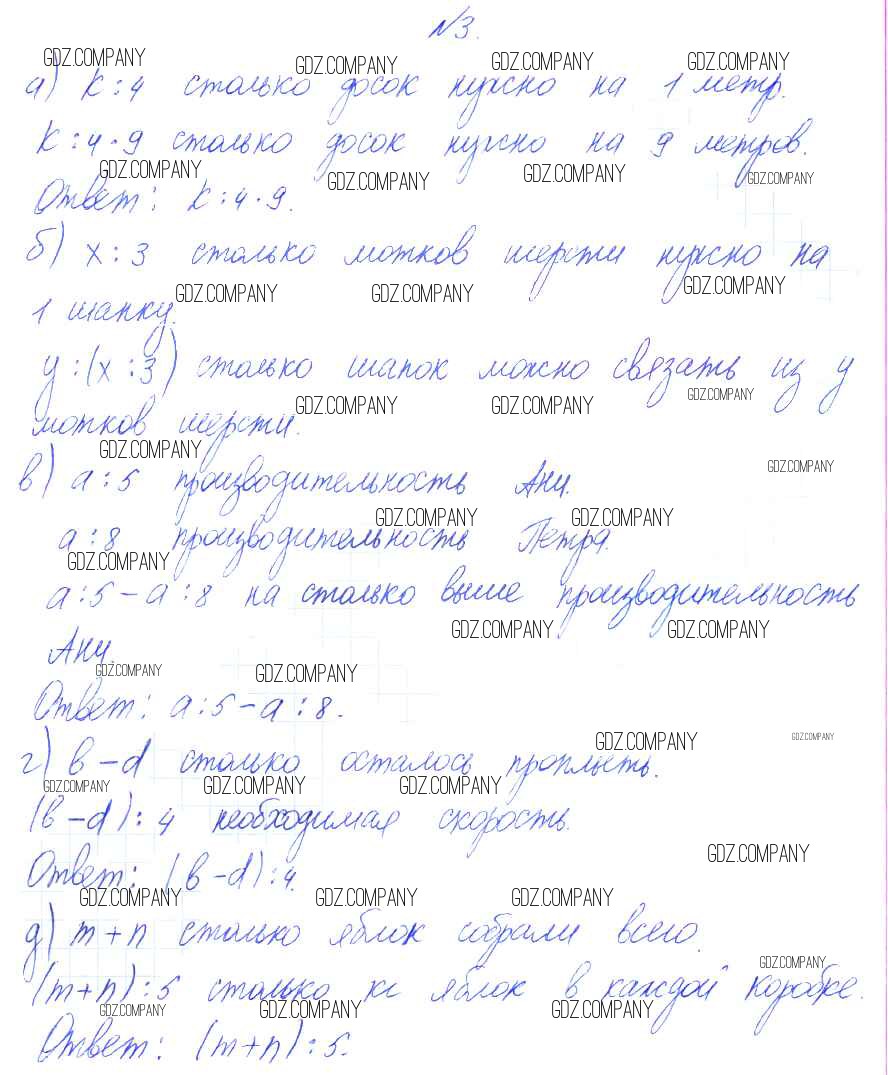 №3.
GDZ.COMPANY GDZ.COMPANY GDZ.COMPANY GDZ.COMPANY
а) k : 4 столько досок нужно на 1 метр.
k : 4 · 9 столько досок нужно на 9 метров.
GDZ.COMPANY GDZ.COMPANY GDZ.COMPANY GDZ.COMPANY
Ответ: k : 4 · 9.
б) x : 3 столько мотков шерсти нужно на
GDZ.COMPANY GDZ.COMPANY GDZ.COMPANY
1 шапку.
y : (x : 3) столько шапок можно связать из y
GDZ.COMPANY GDZ.COMPANY GDZ.COMPANY
мотков шерсти.
GDZ.COMPANY GDZ.COMPANY
в) a : 5 производительность Ани.
GDZ.COMPANY GDZ.COMPANY
a : 8 производительность Петра.
GDZ.COMPANY
a : 5 - a : 8 на столько выше производительность
GDZ.COMPANY GDZ.COMPANY
Ани.
GDZ.COMPANY GDZ.COMPANY
Ответ: a : 5 - a : 8.
GDZ.COMPANY GDZ.COMPANY
г) b - d столько осталось проплыть.
GDZ.COMPANY GDZ.COMPANY GDZ.COMPANY
(b - d) : 4 необходимая скорость.
GDZ.COMPANY
Ответ: (b - d) : 4.
GDZ.COMPANY GDZ.COMPANY GDZ.COMPANY
д) m + n столько яблок собрали всего.
GDZ.COMPANY
(m + n) : 5 столько кг яблок в каждой коробке.
GDZ.COMPANY GDZ.COMPANY GDZ.COMPANY
Ответ: (m + n) : 5.